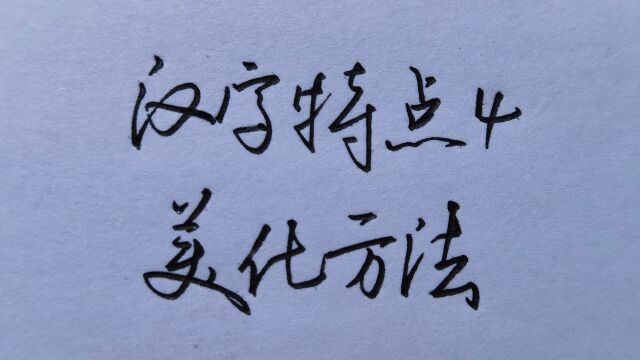 汉字特点4
美化方法